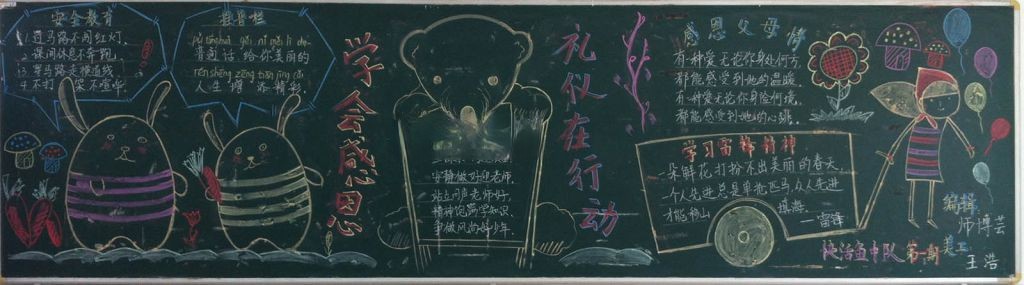 安全教育
1.过马路不闯红灯.
2.课间休息不奔跑.
3.穿马路走横道线
4.不打 不喧哗.
pǔ tōng huà gěi nǐ měi lì de
普通话 给你美丽的
rén shēng zēng tiān jīng cǎi
人生增添精彩.
学会感恩
安静做好迎老师,
站立问声老师好.
精神饱满学知识
争做风尚好少年.
礼仪在行动
感恩父母情
有一种爱无论你身处何方,
都能感受到她的温暖.
有一种爱无论你身险何境,
都能感受到她的心跳.
学习雷锋精神
一朵鲜花打扮不出美丽的春天,
一个人先进总是单枪匹马,众人先进
才能移山填海.
—雷锋
快活鱼中队 第一期
编辑
师博芸
美工
王浩